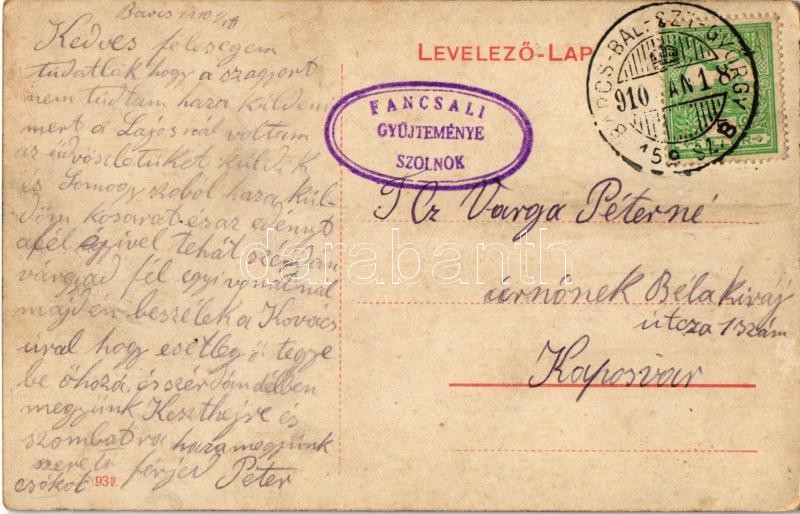 Barcs 1910 1/18
Kedves feleségem
tudatlak hogy a
nem tudtam haza külden
mert a Lajosnál voltam
az üdvözletüket küldik
és Somogyszoból haza kül-
döm kosarat és az edényt
a fél egyivel tehát szerdán
várjad fél egyi vonatnál
majd én beszélek a Kovacs
úral hogy esetleg ő tegye
be őhozá, és szérdán délben
megyünk Keszthejre és
szombatra haza megyünk
szerető férjed Péter
csókol
931.
LEVELEZŐ-LAP
FANCSALI
GYŰJTEMÉNYE
SZOLNOK
BARCS-BAL-SZT-GYÖRGY
910 JAN 18
159. SZ.
T Cz Varga Péterné
úrnőnek Béla király
útcza 1 szám
Kaposvar
darabanth